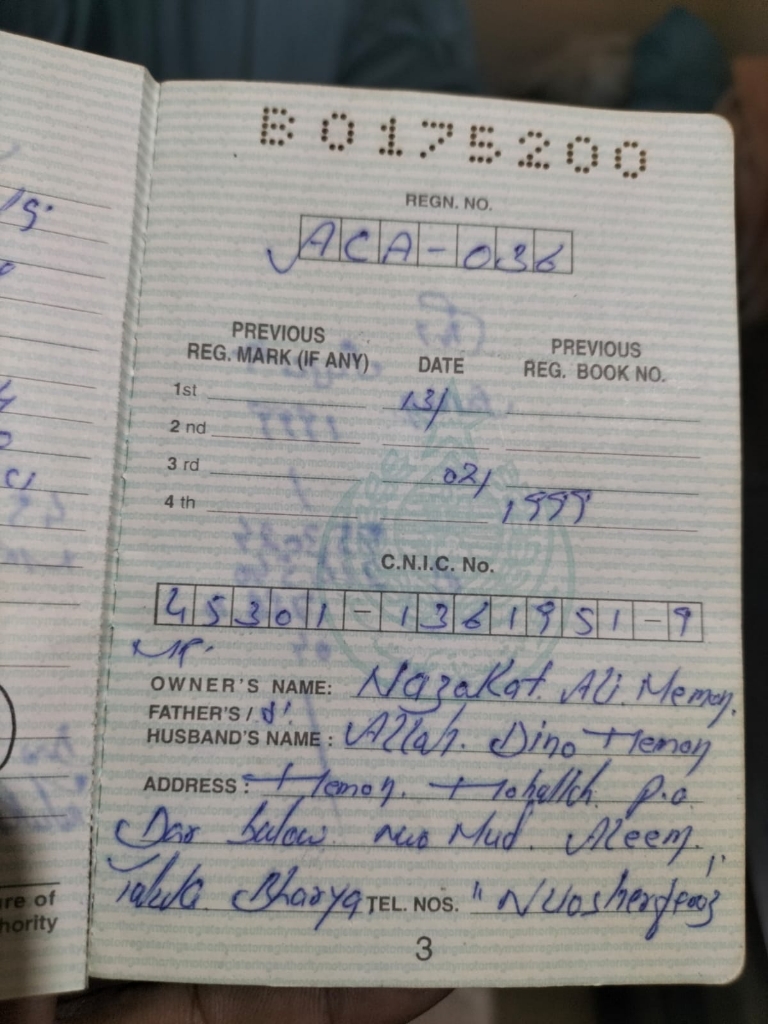 B0175200
REGN. NO.
ACA-036
PREVIOUS REG. MARK (IF ANY) DATE PREVIOUS REG. BOOK NO.
1st 13/
2 nd
3 rd 02/
4 th 1999
C.N.I.C. No.
45301-1361951-9
Mr.
OWNER'S NAME: Nazakat Ali Memon.
FATHER'S /
HUSBAND'S NAME: Allah Dino Memon
ADDRESS: Memon Mohallah P.O.
Dar Mud. Aleem.
Taluka Bharya TEL. NOS. "
3
re of
hority